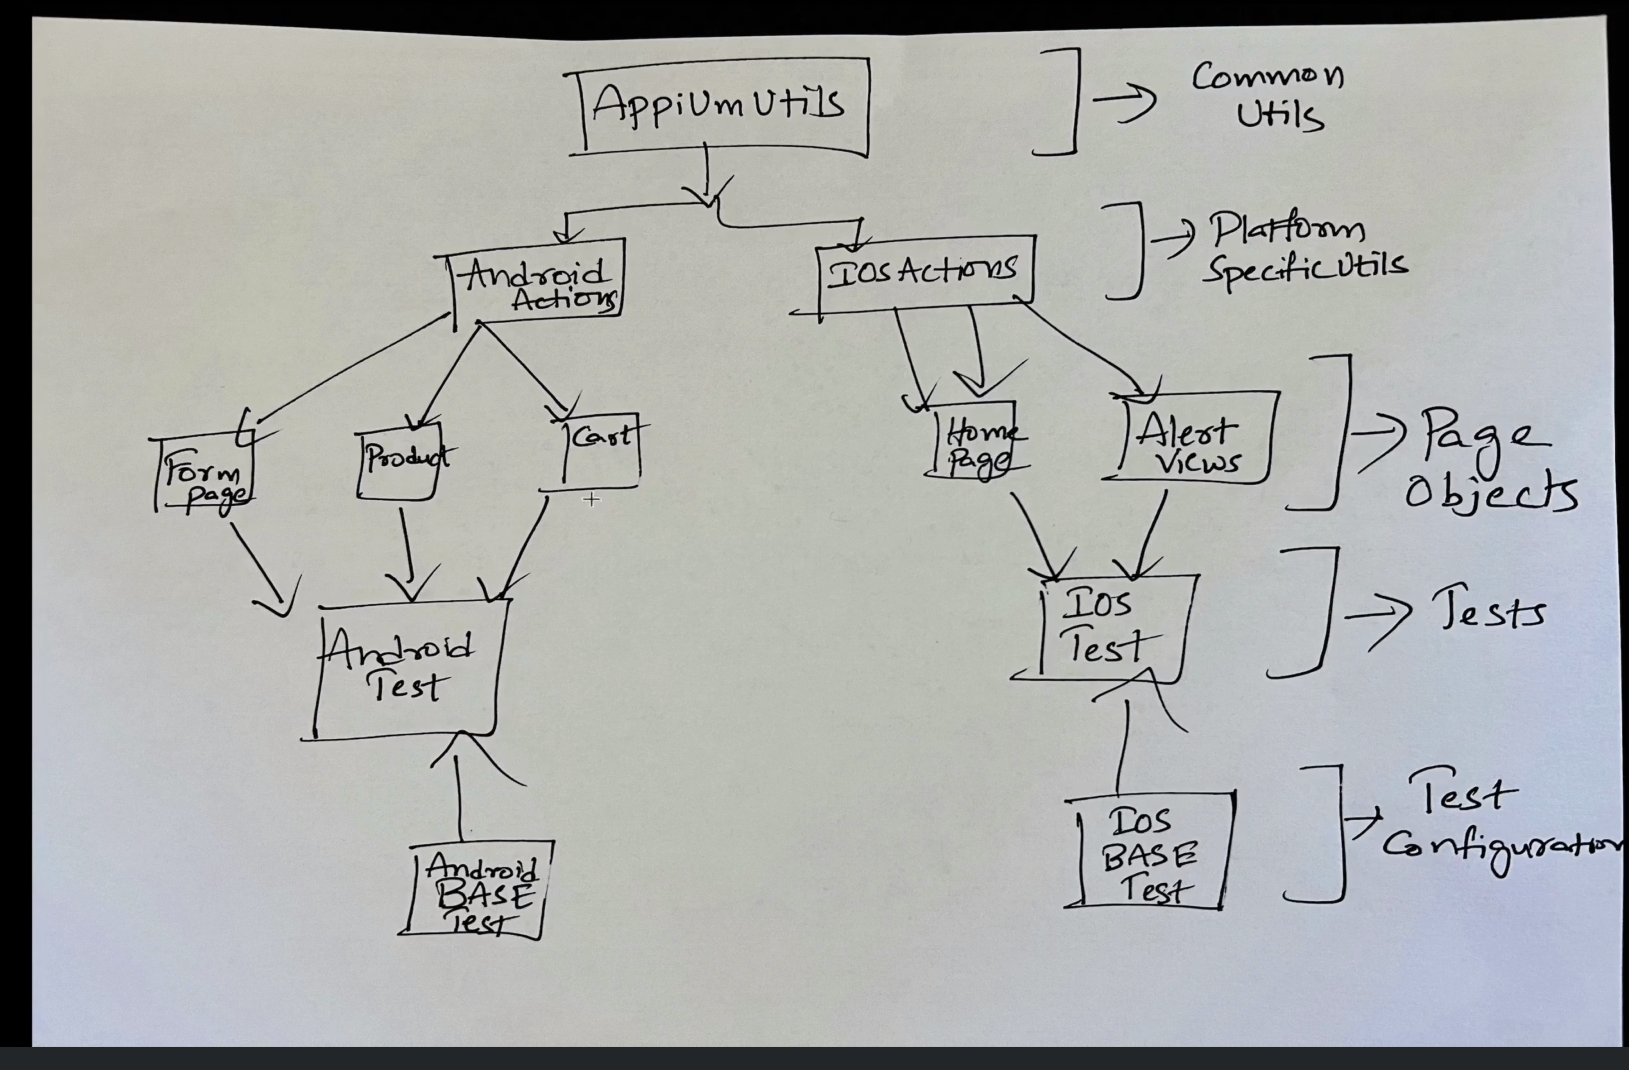 Appium Utils
Common
Utils
Android
Actions
IOS Actions
Platform
Specific Utils
Form
page
Product
Cart
Home
Page
Alert
views
Page
Objects
Android
Test
IOS
Test
Tests
Android
BASE
Test
IOS
BASE
Test
Test
Configuration